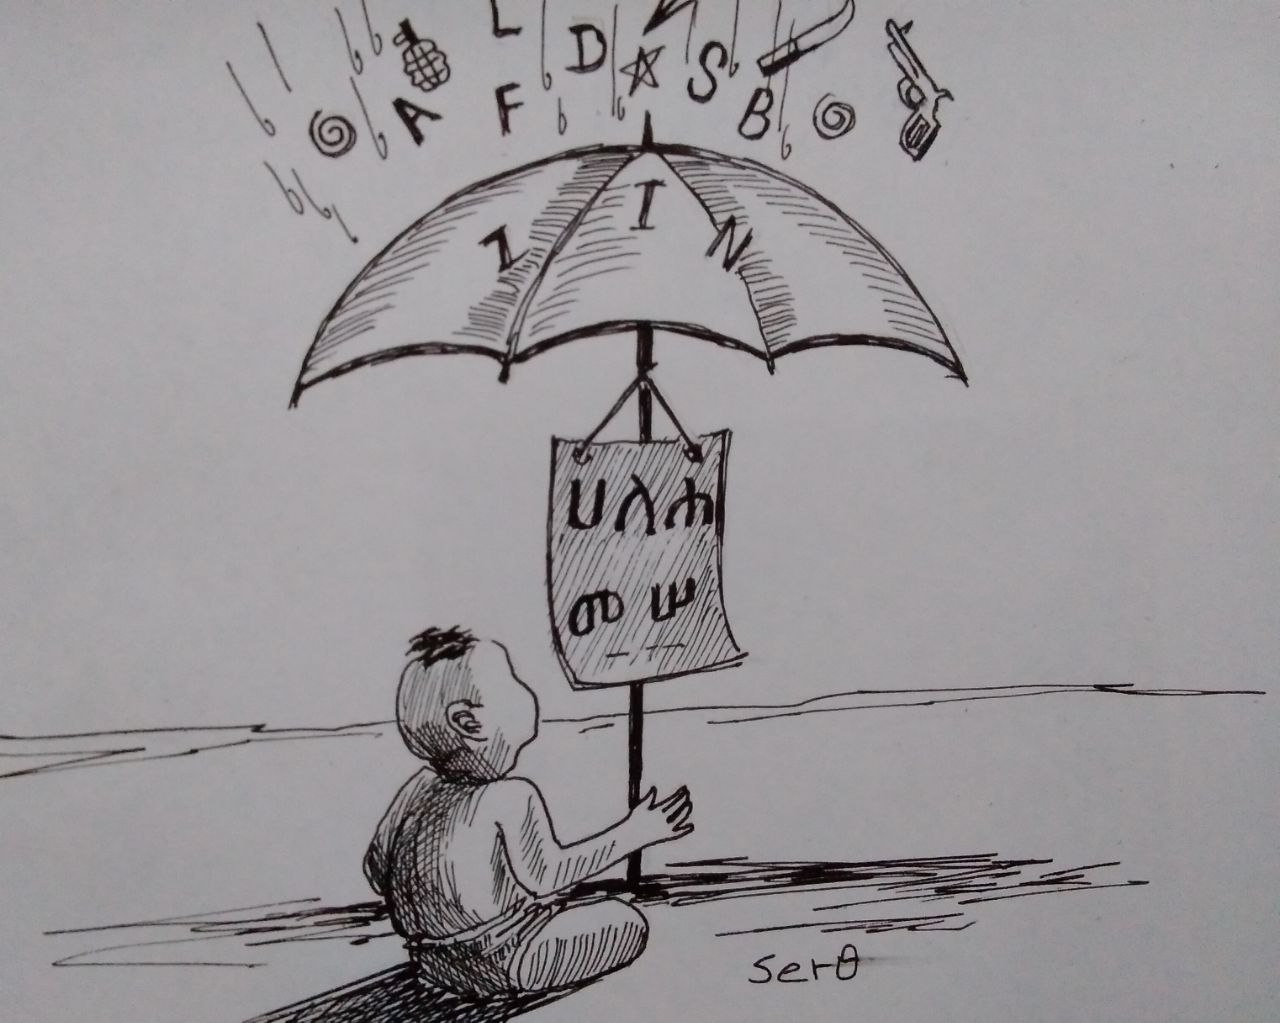 L D S
A F B
Z I N
ሀ ለ ሐ
መ ሠ
serθ